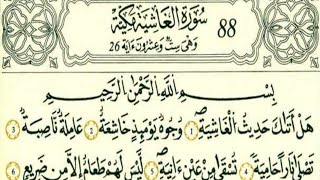 سُورَةُ الْغَاشِيَةِ مَكِّيَّةٌ 88
وَهِيَ سِتٌّ وَعِشْرُونَ ءَايَةً 26
بِسْمِ اللَّهِ الرَّحْمَٰنِ الرَّحِيمِ
هَلْ أَتَىٰكَ حَدِيثُ الْغَٰشِيَةِ 1 وُجُوهٌ يَوْمَئِذٍ خَٰشِعَةٌ 2 عَامِلَةٌ نَّاصِبَةٌ 3
تَصْلَىٰ نَارًا حَامِيَةً 4 تُسْقَىٰ مِنْ عَيْنٍ ءَانِيَةٍ 5 لَّيْسَ لَهُمْ طَعَامٌ إِلَّا مِن ضَرِيعٍ 6